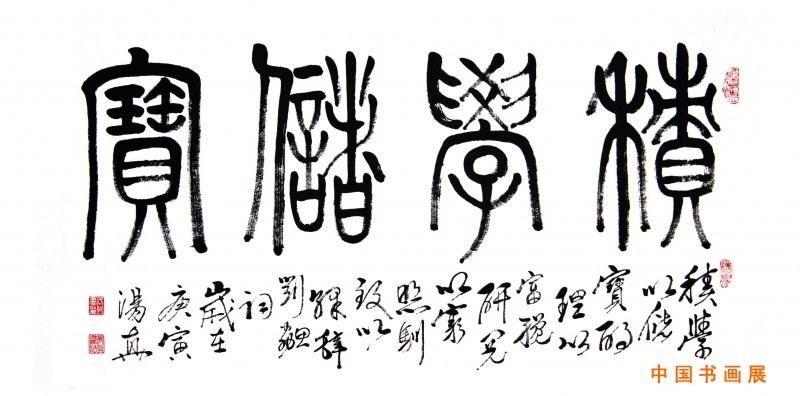 積學儲寶
積學
以儲
寶酌
理以
富
研閱
以窮
照馴
致以
繹辭
劉勰
詞
歲在
庚寅
湯
中国书画展